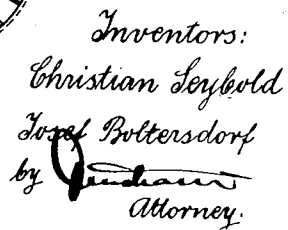 Inventors:
Christian Seybold
Josef Boltersdorf
by
Attorney.